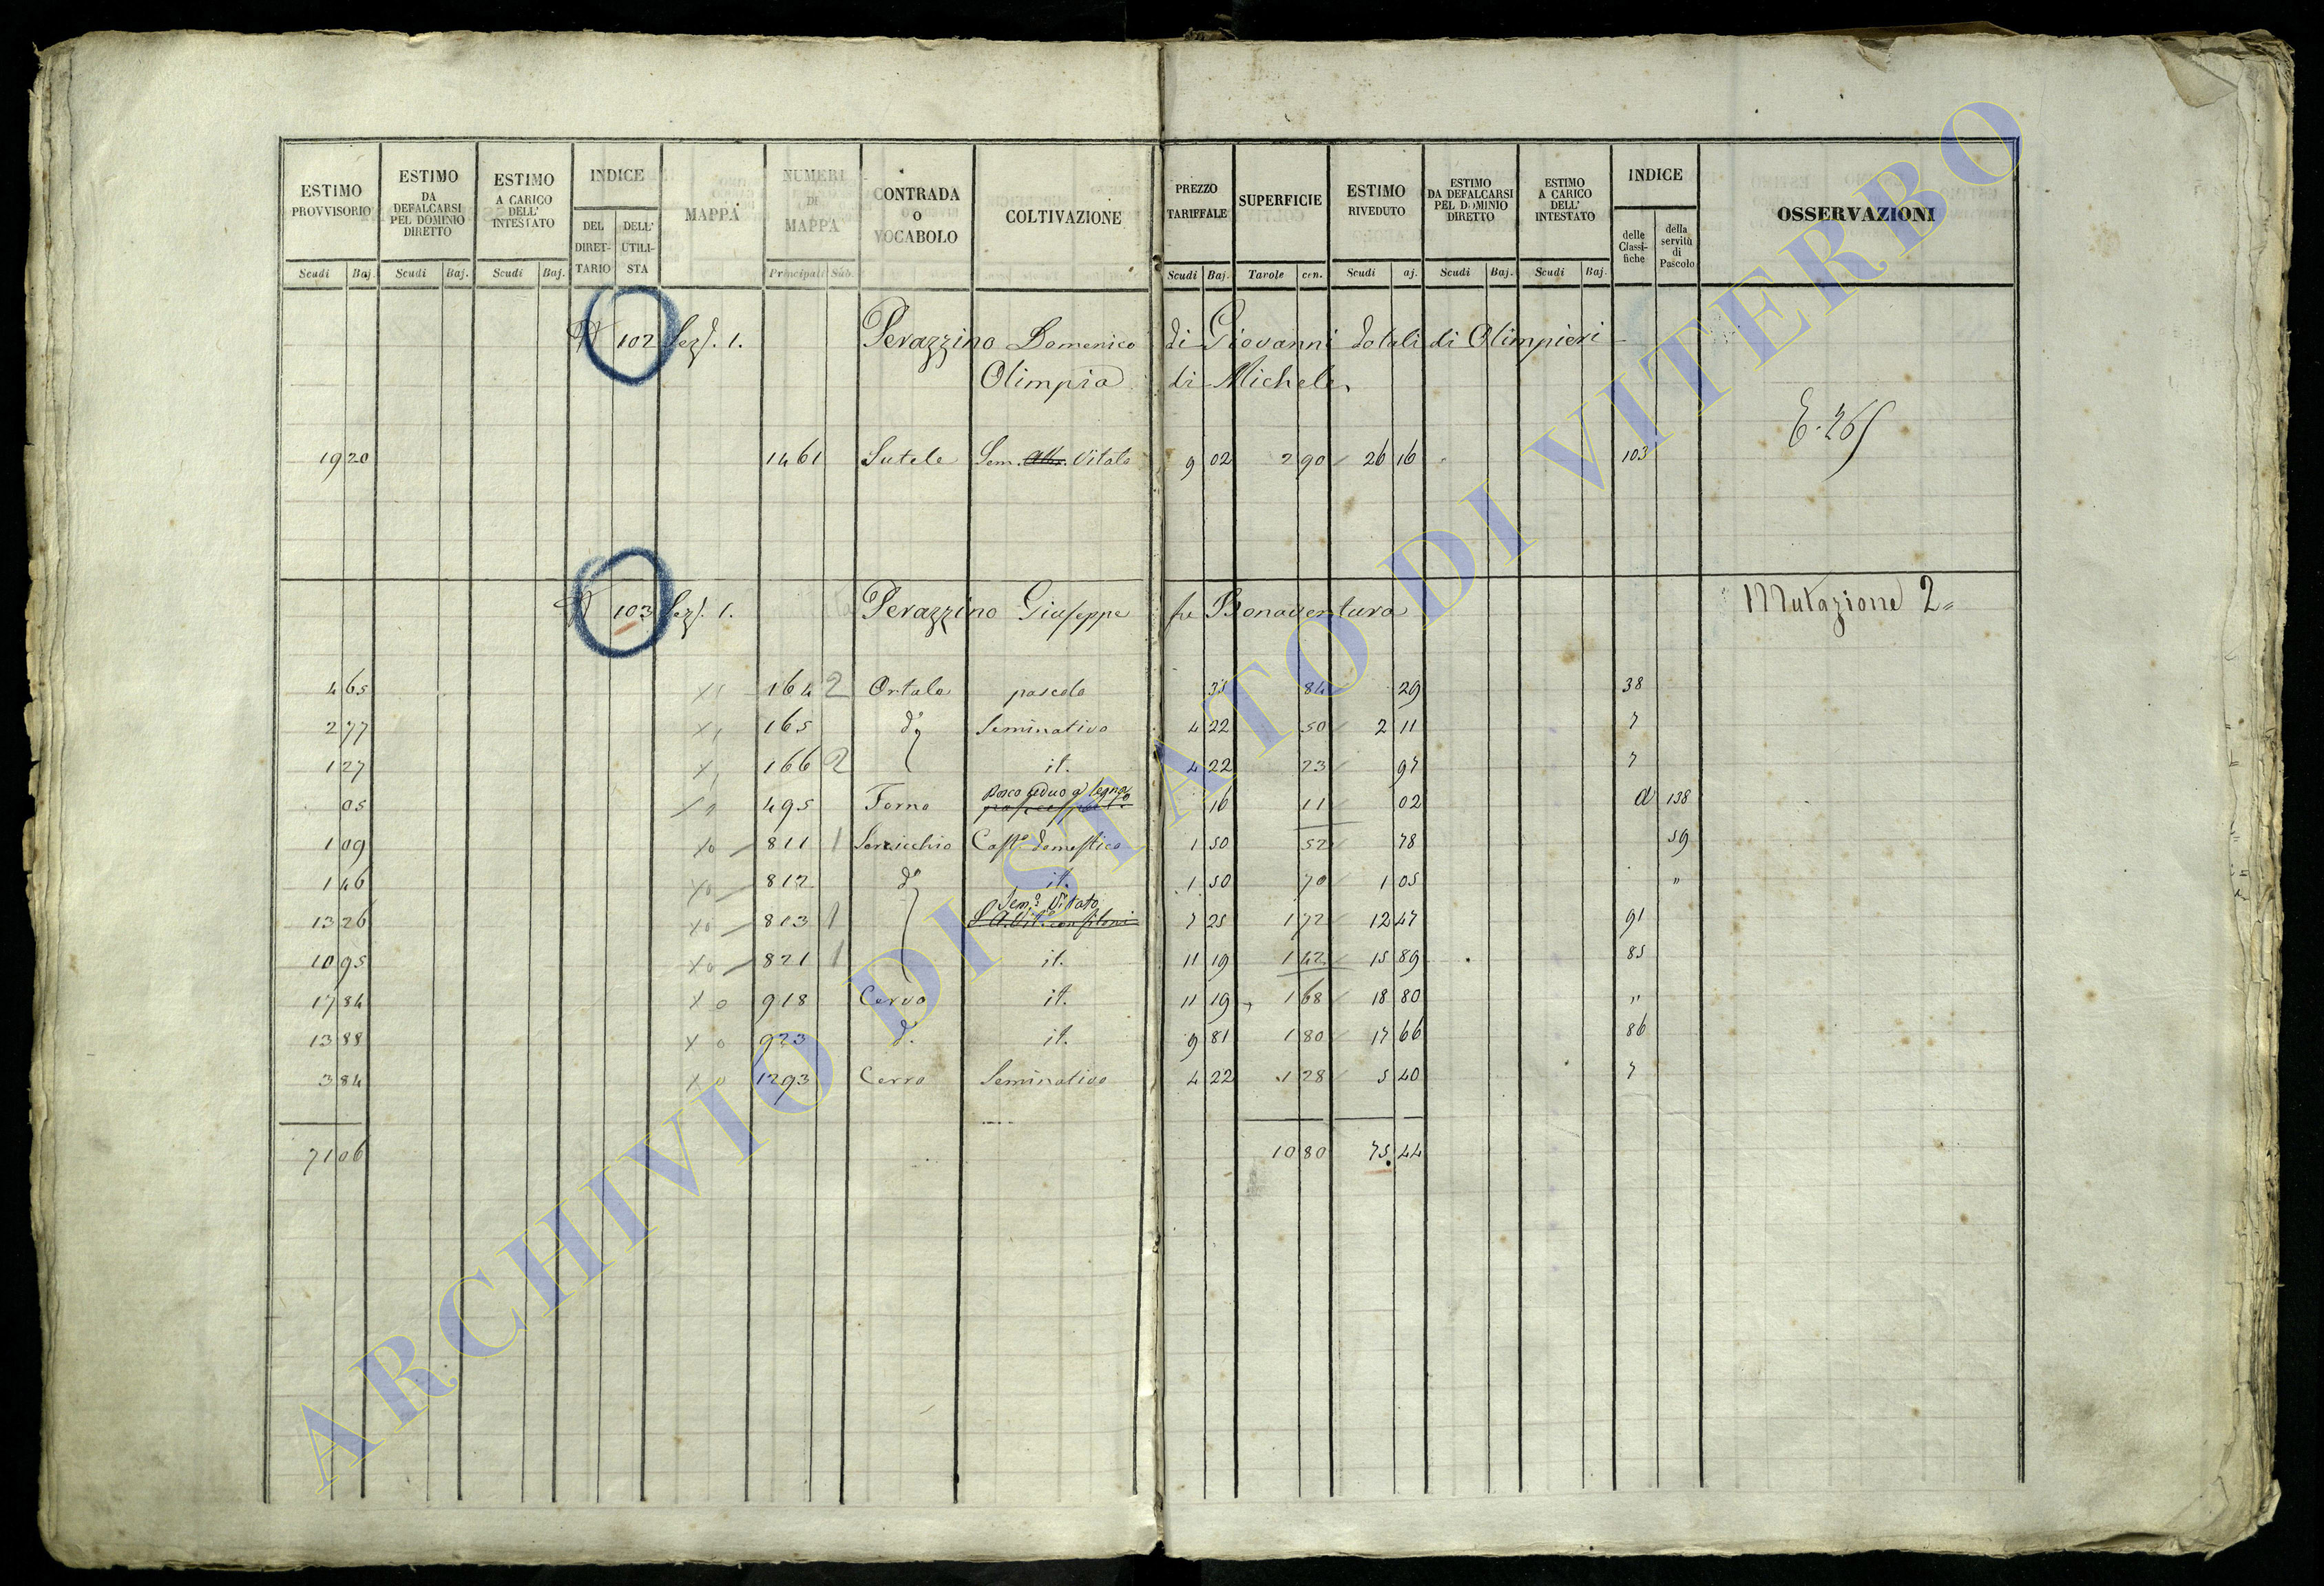 ESTIMO PROVVISORIO ESTIMO DA DEFALCARSI PEL DOMINIO DIRETTO ESTIMO A CARICO DELL' INTESTATO INDICE DEL DIRETTARIO DELL' UTILISTA MAPPA NUMERI DI MAPPA CONTRADA O VOCABOLO COLTIVAZIONE PREZZO TARIFFALE SUPERFICIE ESTIMO RIVEDUTO ESTIMO DA DEFALCARSI PEL DOMINIO DIRETTO ESTIMO A CARICO DELL' INTESTATO INDICE delle Classifiche della servitù di Pascolo OSSERVAZIONI
Scudi Baj. Scudi Baj. Scudi Baj. Principali Sub. Scudi Baj. Tavole cen. Scudi aj. Scudi Baj. Scudi Baj.
102 Sez. 1. Perazzino Domenico di Giovanni dotali di Olimpieri
Olimpia di Michele
E. 265
19 20 1461 Sutele Sem. Vitato 9 02 2 90 26 16 103
103 Sez. 1. Perazzino Giuseppe fu Bonaventura Mutazione 2
4 65 164 2 Ortale pascolo 35 84 29 38
2 77 165 do Seminativo 4 22 50 2 11 7
1 27 166 2 it. 4 22 23 97 7
05 495 Forno Bosco ceduo a legna 16 11 02 a 138
1 09 811 1 Sericchio Casto domestico 1 50 52 78 59
1 46 812 do it. 1 50 70 1 05 "
13 26 813 1 Semo Vitato 7 25 1 72 12 47 91
10 95 821 1 it. 11 19 1 42 15 89 85
17 84 918 Cervo it. 11 19 1 68 18 80 "
13 88 923 do it. 9 81 1 80 17 66 86
3 84 1293 Cerro Seminativo 4 22 1 28 5 40 7
71 06 10 80 75 44
ARCHIVIO DI STATO DI VITERBO